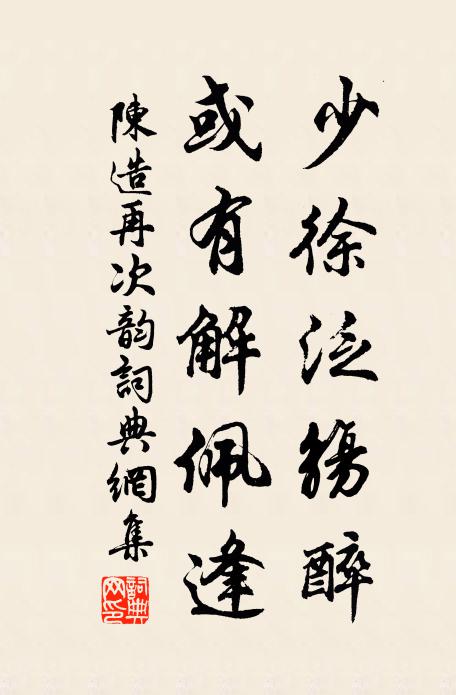 少徐泛觴醉
或有解佩逢
陳造再次韵詞典網集